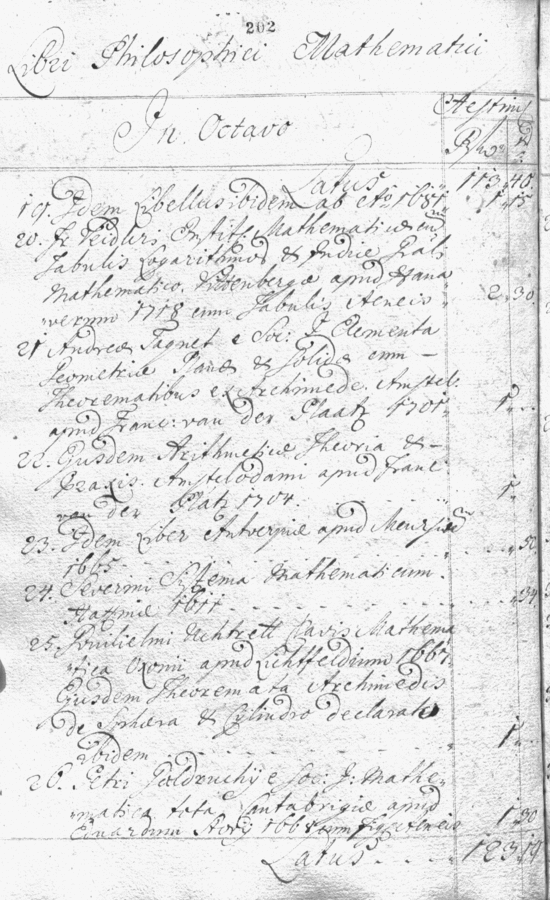 202
Libri Philosophici Mathematici
In Octavo
Aestim
Latus 113 40.
19. Idem Libellus ibidem ab eto 1681. 1. 15
20. Institut: Mathematicae cum
Tabulis Logarithmor & Indice
Mathematico. apud
1718 cum Tabulis Aeneis 2. 30.
21 Andreae Taquet e Soc: J. Elementa
Geometriae Planae & Solidae cum –
Theorematibus ex Archimede. Amstel.
apud Franc: van der Plaatz 1701. 1.
22. Ejusdem Arithmeticae Theoria & –
Praxis. Amstelodami apud Franc
van der Platz 1704. 1.
23. Idem Liber Antverpiae apud Meursium
1665 50.
24. Sistema Mathematicum.
1611
25. Guilielmi Clavis Mathema
tica Oxonii apud Lichtfeldium 1667.
Ejusdem Theoremata Archimedis
de Sphaera & Cylindro declarata
ibidem 1.
26. Petri e Soc: J: Mathe
matica tota Cantabrigiae apud
1668 cum Aeneis 1. 30
Latus 123 19